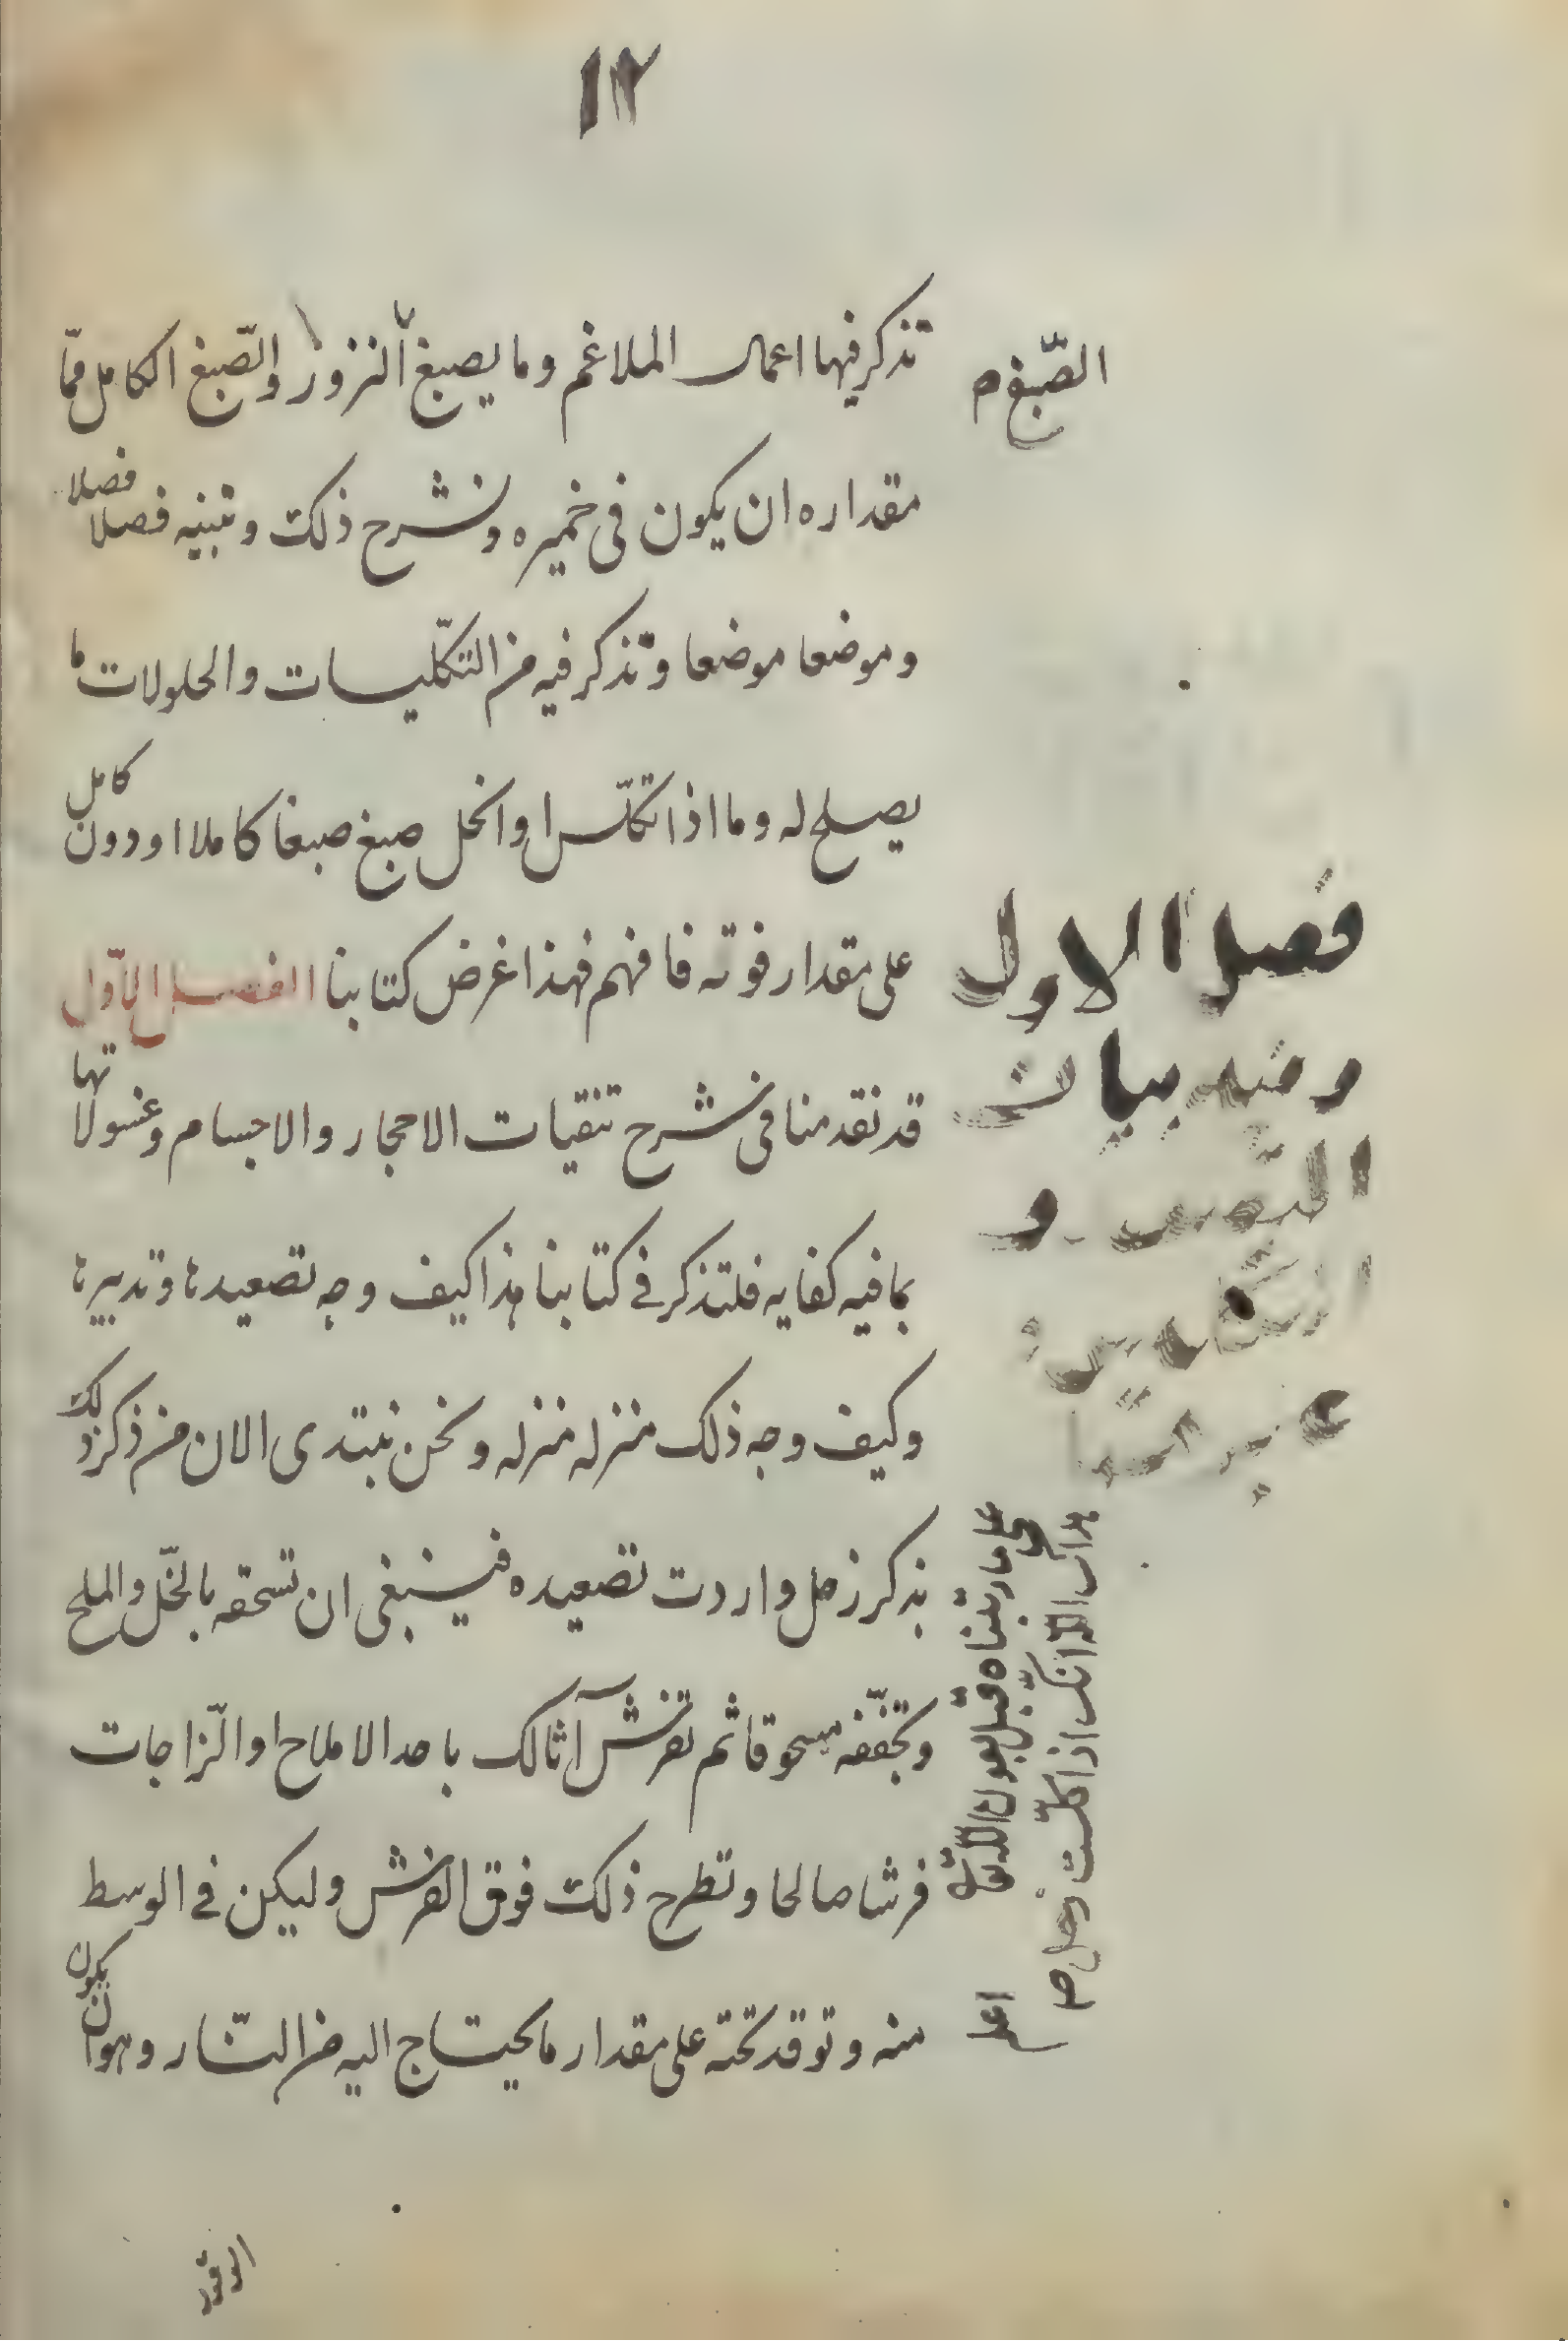 ١٢
نذكر فيها اعمال الملاغم وما يصبغ النزور والصّبغ الكامل ممّا
الصّبغ م
مقداره ان يكون فى خميره ونشرح ذلك ونبنيه فصلا فصلا
وموضعا موضعا ونذكر فيه من التكليسات والحلولات ما
يصلح له وما اذا تكلّس او انحل صبغ صبغا كاملا او دون كامل
على مقدار قوته فافهم فهذا غرض كتابنا الفصل الاوّل
قد تقدمنا فى شرح تنقيات الاحجار والاجسام وغسولاتها
بما فيه كفايه فلنذكر فى كتابنا هذا كيف وجه تصعيدها وتدبيرها
وكيف وجه ذلك منزله منزله ونحن نبتدى الان من ذكر ذلك
بذكر زحل واردت تصعيده فينبغى ان تسحقه بالخلّ والملح
وتجفّفه مسحوقا ثم تفرش آثالك باحد الاملاح او الزّاجات
فرشا صالحا وتطرح ذلك فوق الفرش وليكن فى الوسط
منه وتوقد تحته على مقدار ما يحتاج اليه من النّار وهو ان يكون
فصل الاول
وفيه بيان
على ما رتبناه قبل بعون اللّه تعالى
اعلم
هداك اللّه انّك اذا كلّست زحل صح
الوقود